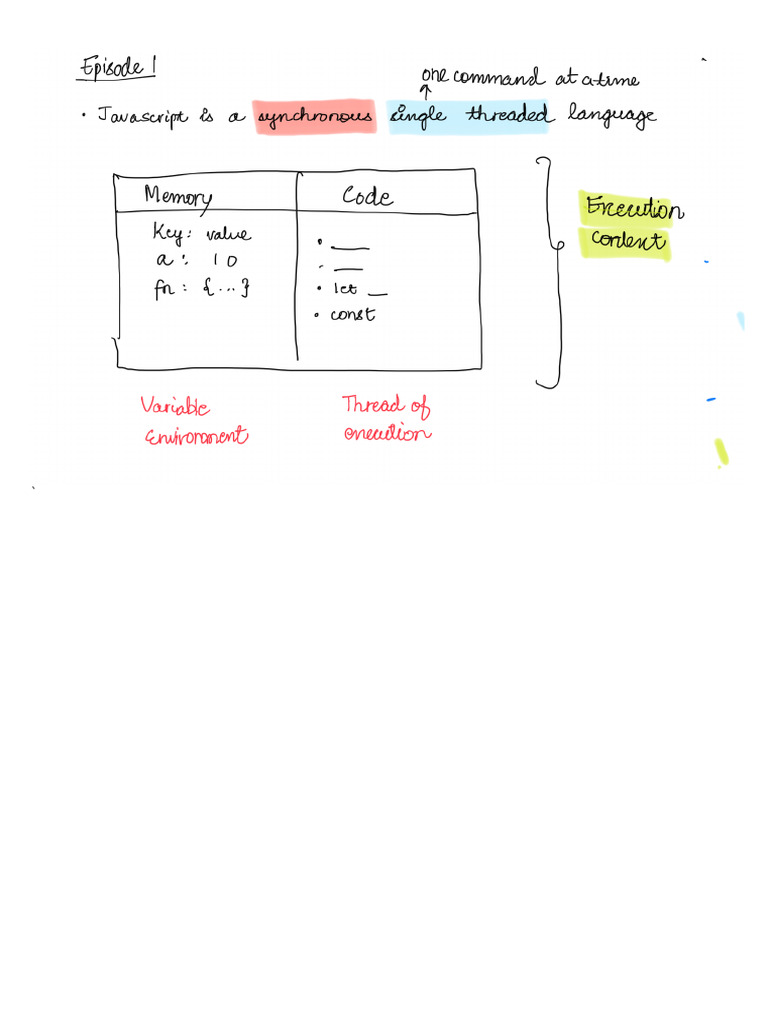 Episode 1
one command at a time
• Javascript is a synchronous single threaded language
Memory
Code
Key: value
a: 10
fn: {...}
• ___
- ___
• let _
• const
Execution
context
Variable
Environment
Thread of
execution